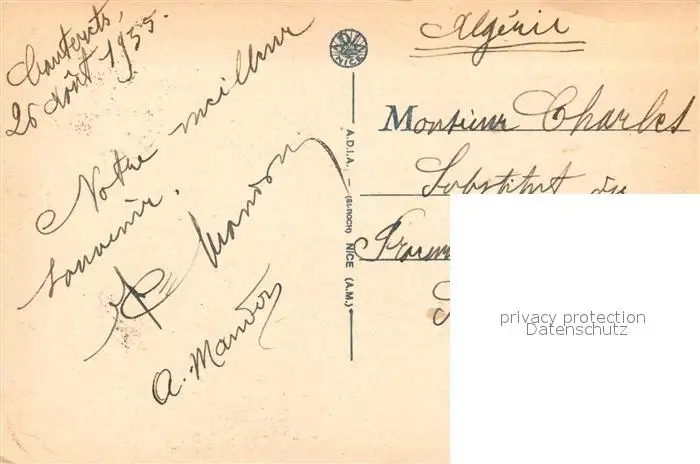 Cauterets,
26 Août 1955.
Notre meilleur
souvenir.
A. Mandon
NICE
A.D.I.A. — (ST-ROCH) NICE (A.M.)
Algérie
Monsieur Charles
Substitut du
privacy protection
Datenschutz